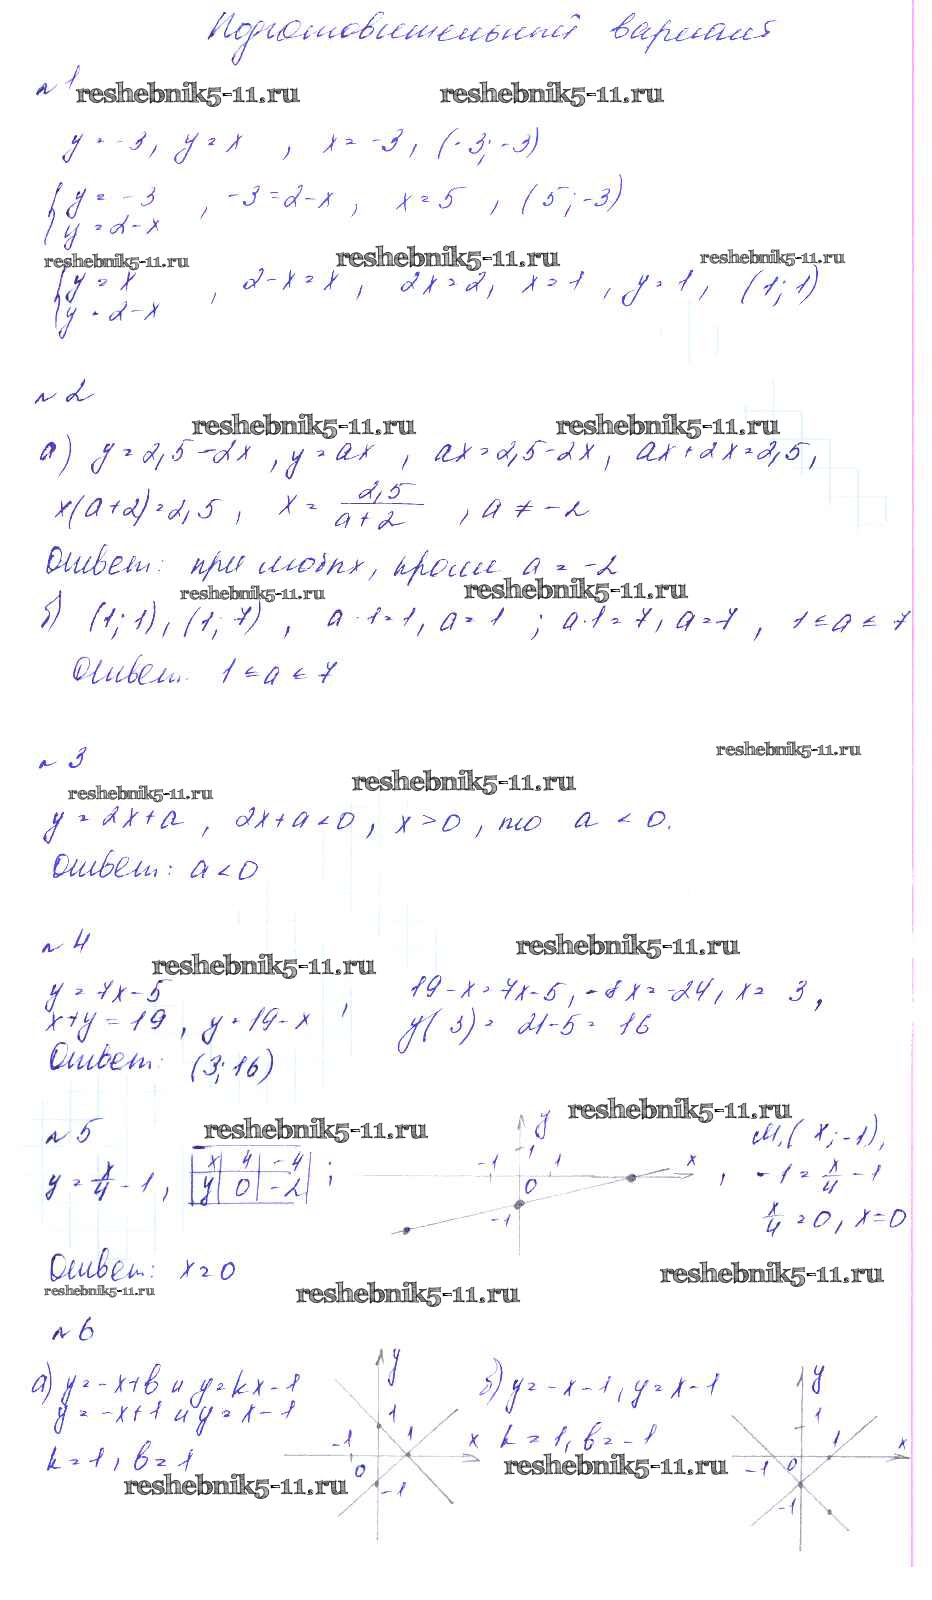 Подготовительный вариант
№1
reshebnik5-11.ru reshebnik5-11.ru
y = -3, y = x , x = -3, (-3; -3)
{y = -3 , -3 = 2-x, x = 5 , (5; -3)
y = 2-x
reshebnik5-11.ru reshebnik5-11.ru reshebnik5-11.ru
{y = x , 2-x = x, 2x = 2, x = 1, y = 1, (1; 1)
y = 2-x
№2
reshebnik5-11.ru reshebnik5-11.ru
а) y = 2,5-2x, y = ax, ax = 2,5-2x, ax+2x = 2,5,
x(a+2) = 2,5, x = 2,5/(a+2), a ≠ -2
Ответ: при любых, кроме a = -2
reshebnik5-11.ru reshebnik5-11.ru
б) (1; 1), (1; 7), a·1 = 1, a = 1; a·1 = 7, a = 7, 1 ≤ a ≤ 7
Ответ: 1 ≤ a ≤ 7
reshebnik5-11.ru
№3
reshebnik5-11.ru reshebnik5-11.ru
y = 2x+a, 2x+a < 0, x > 0, то a < 0.
Ответ: a < 0
№4
reshebnik5-11.ru reshebnik5-11.ru
y = 7x-5 , 19-x = 7x-5, -8x = -24, x = 3,
x+y = 19, y = 19-x y(3) = 21-5 = 16
Ответ: (3; 16)
№5
reshebnik5-11.ru reshebnik5-11.ru
y = x/4 - 1, x 4 -4 ; y x -1 1 1 0 -1 , M1(x; -1),
y 0 -2 -1 = x/4 - 1
x/4 = 0, x = 0
Ответ: x = 0
reshebnik5-11.ru reshebnik5-11.ru reshebnik5-11.ru
№6
а) y = -x+b и y = kx-1 y б) y = -x-1, y = x-1 y
y = -x+1 и y = x-1 1 1
k = 1, b = 1 -1 1 x 0 k = 1, b = -1 -1 0 1 x
reshebnik5-11.ru -1 reshebnik5-11.ru -1